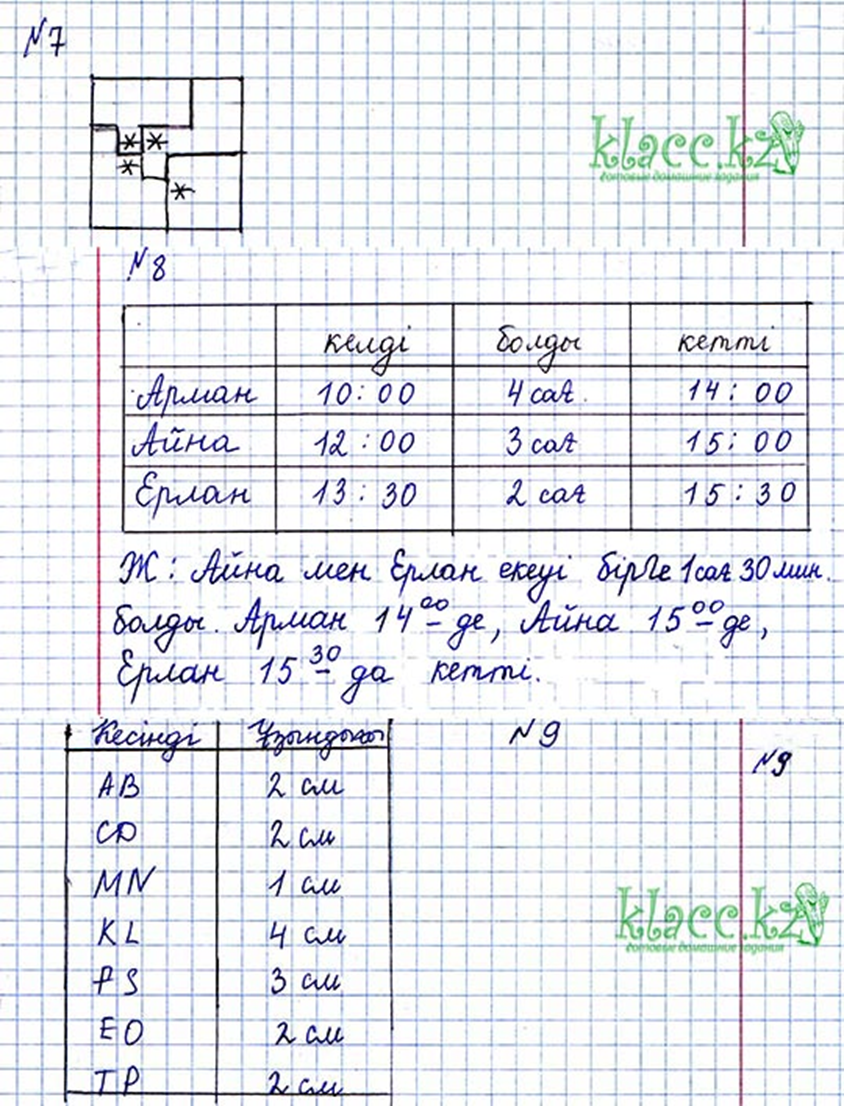 N7
* *
*
*
klacc.kz
готовые домашние задания
N8
келді болды кетті
Арман 10:00 4 сағ. 14:00
Айна 12:00 3 сағ 15:00
Ерлан 13:30 2 сағ 15:30
Ж: Айна мен Ерлан екеуі бірге 1 сағ 30 мин.
болды. Арман 14⁰⁰ де, Айна 15⁰⁰ де,
Ерлан 15³⁰ да кетті.
Кесінді Ұзындығы N9
N9
AB 2 см
CD 2 см
MN 1 см
KL 4 см
klacc.kz
готовые домашние задания
PS 3 см
EO 2 см
TP 2 см